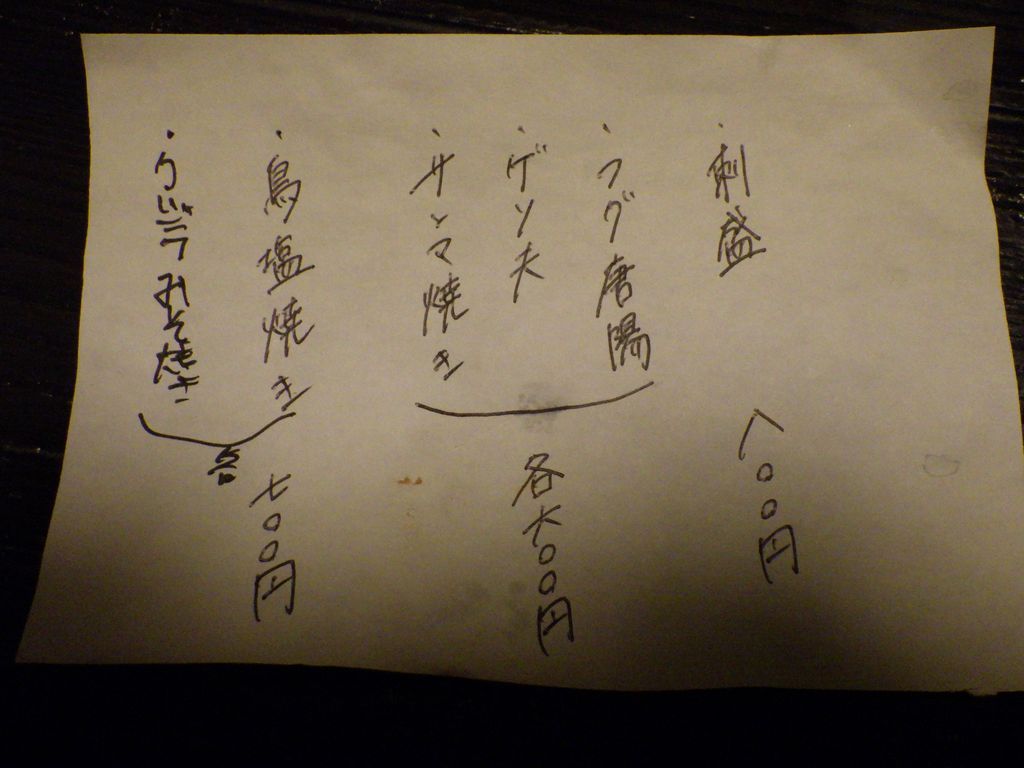 ・刺盛 八〇〇円
・フグ唐陽
・ゲソ夫
・サンマ焼き
各六〇〇円
・鳥塩焼き
・クジラみそ焼き
各七〇〇円